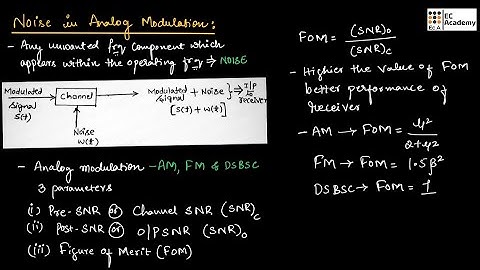 Noise in Analog Modulation:
- Any unwanted frqy component which
appears within the operating frqy ⇒ NOISE
Modulated
Signal
S(t)
Channel
Noise
W(t)
Modulated + Noise
Signal
[S(t) + W(t)]
⇒ I/P
to
receiver
- Analog modulation - AM, FM & DSBSC
3 parameters
(i) Pre-SNR or Channel SNR (SNR)c
(ii) Post-SNR or O/P SNR (SNR)o
(iii) Figure of Merit (FOM)
EC
Academy
FOM = (SNR)o
(SNR)c
- Higher the value of FOM
better performance of
receiver
- AM → FOM = μ²
2+μ²
FM → FOM = 1.5β²
DSBSC → FOM = 1